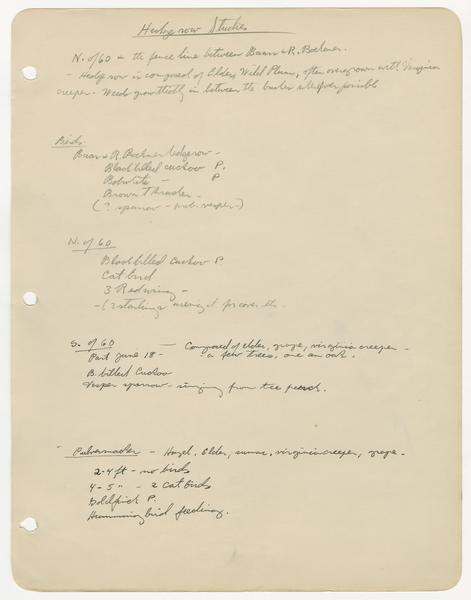 Hedge row Studies
N. of 60 & the fence line between Baan & R. Bochner.
- Hedge row is composed of Elders Wild Plum, often overgrown with Virginia
creeper. Weeds growthickly in between the bushes wherever possible
Birds.
Baan & R. Bochner hedgerow -
Blackbilled cuckoo P.
Bobwhite - P
Brown Thrasher -
(? sparrow - prob. vesper)
N. of 60
Blackbilled cuckoo P
Cat bird
3 Redwing -
- (2 starlings
S. of 60 — Composed of elder, grape, virginia creeper -
Part June 18 - a few trees, one an oak.
B. billed Cuckoo
Vesper sparrow - singing from tree perch.
Pulvermacher - Hazel, Elder, sumac, virginia creeper, grape -
2-4 ft - no birds
4-5 " - 2 cat birds
Goldfinch P.
Humming bird feeding.